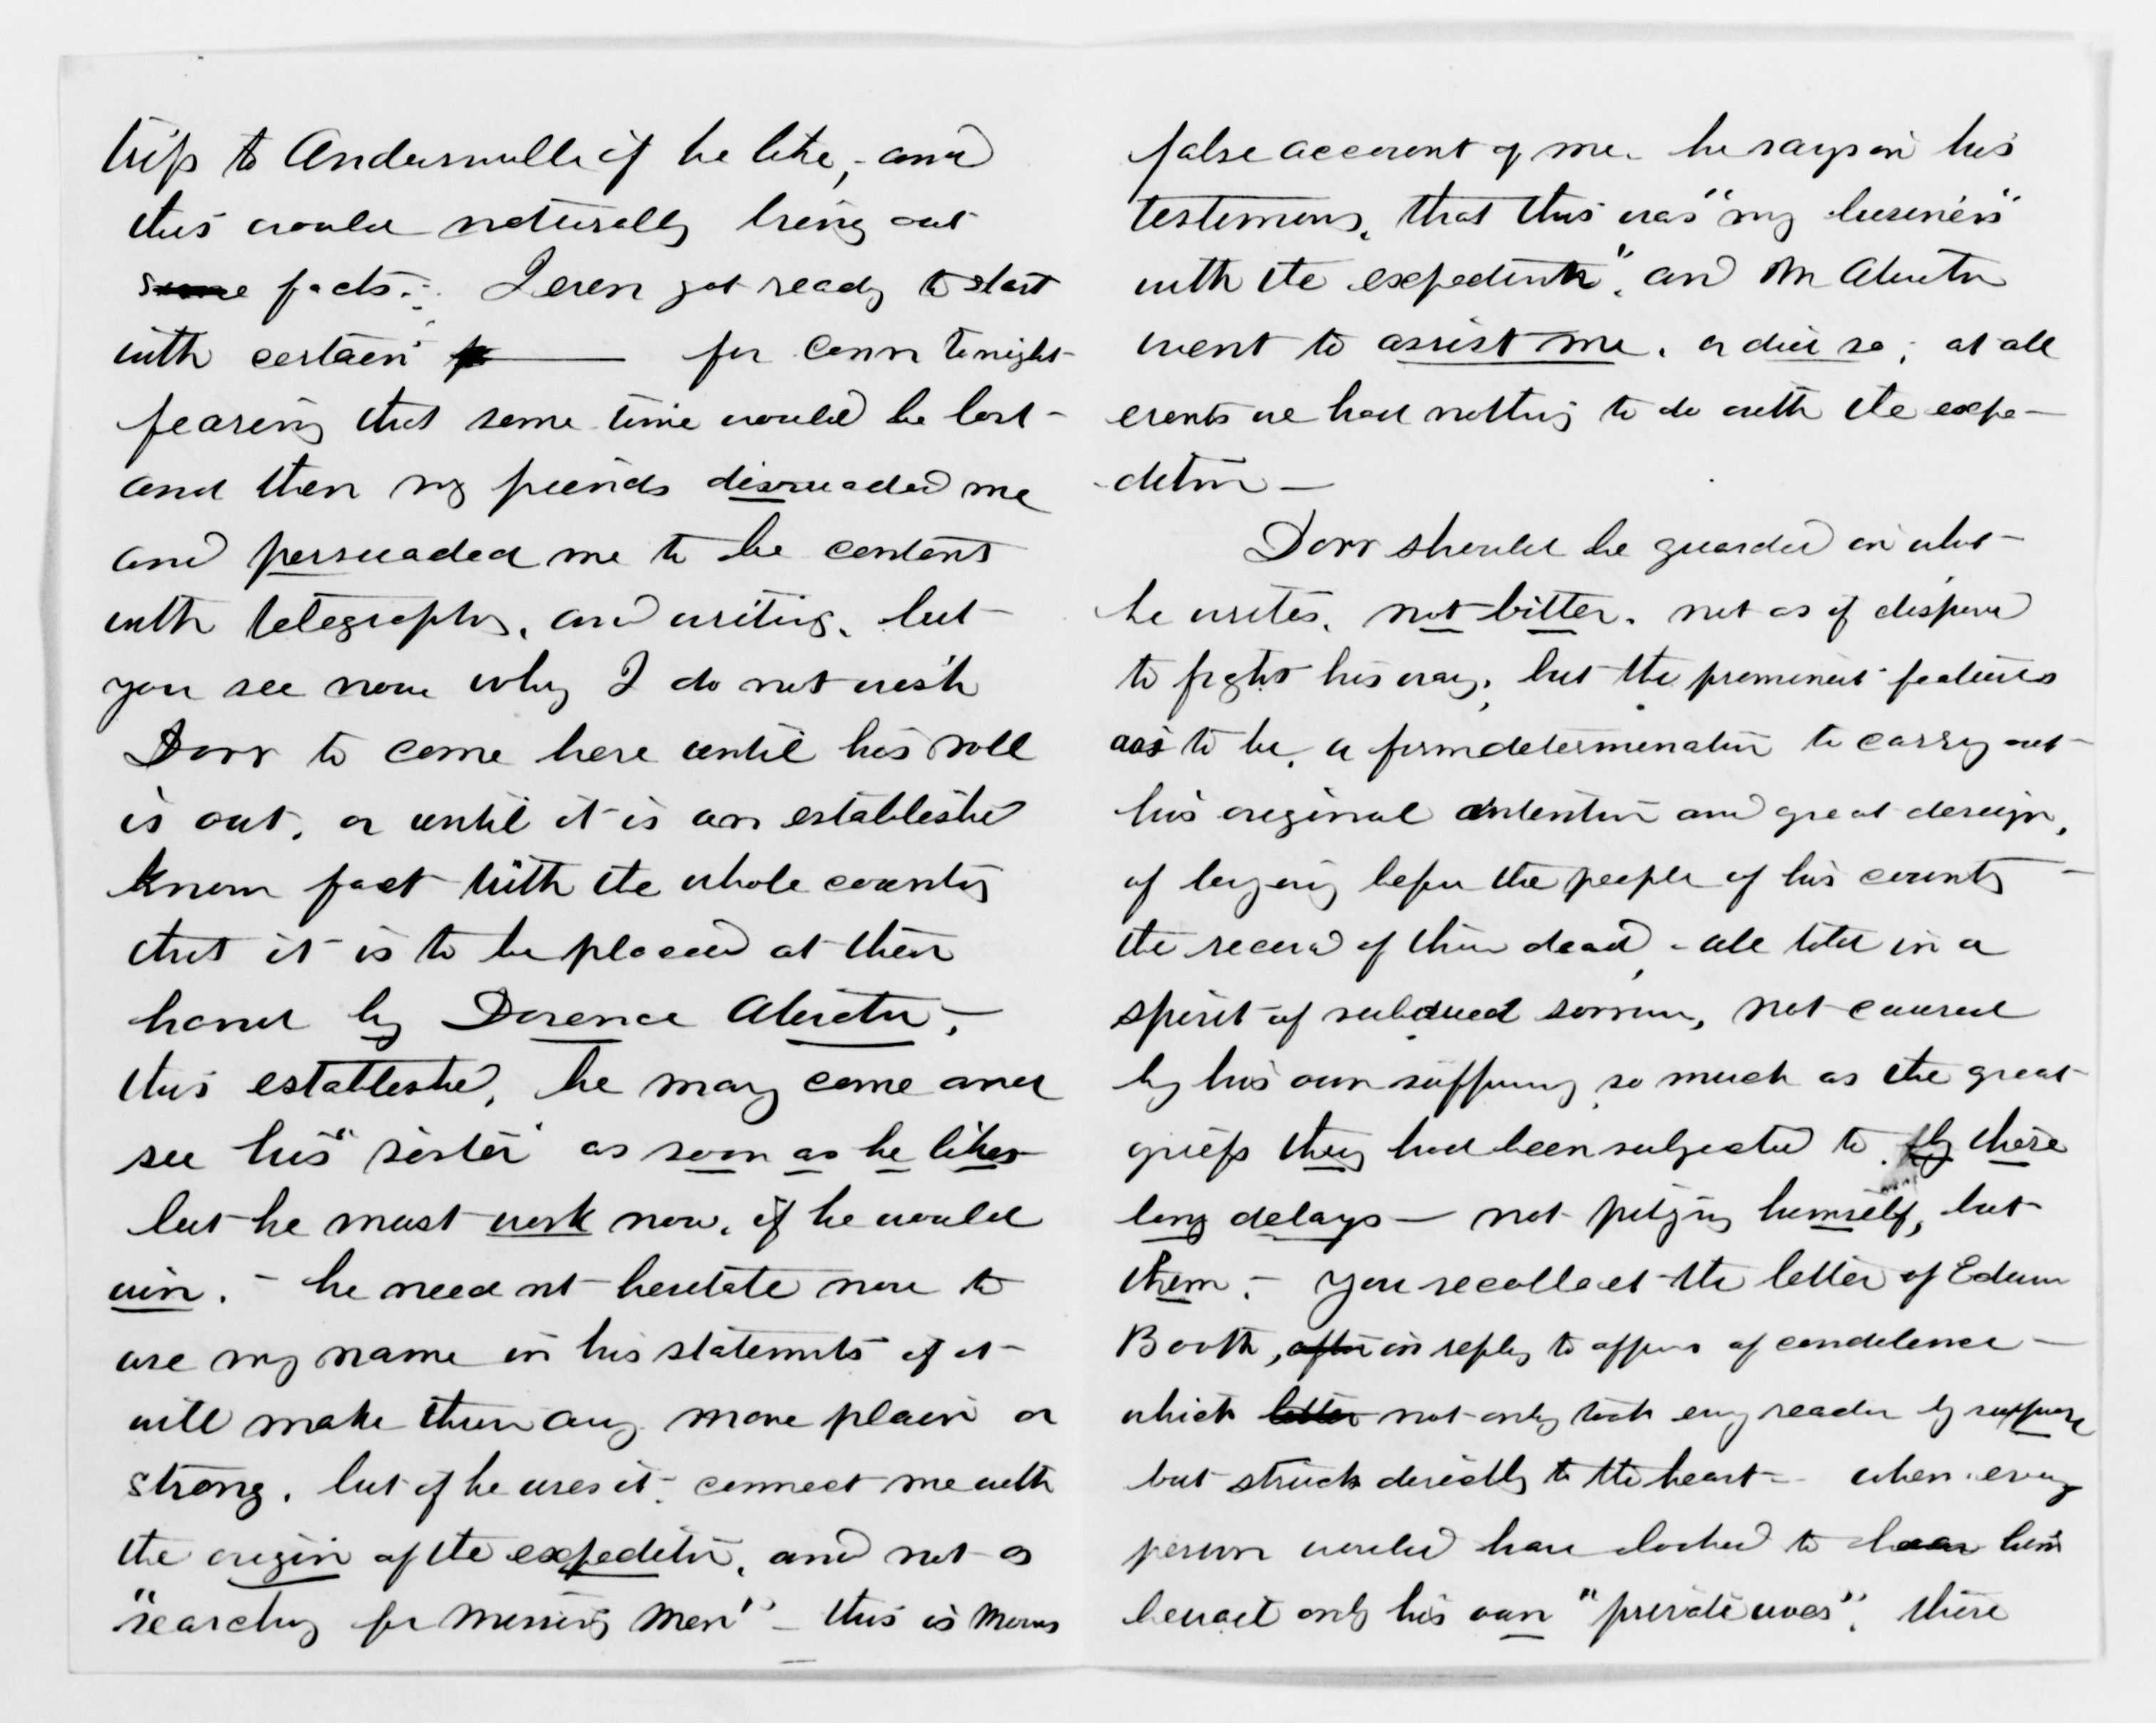 trip to Andersonville if he like, - and
this would naturally bring out
some facts. - I even got ready to start
with certain for Conn tonight -
fearing that some time would be lost -
and then my friends dissuaded me
and persuaded me to be content
with telegraphing, and writing, but -
you see now why I do not wish
Dorr to come here until his roll
is out, or until it is an established
known fact with the whole country
that it is to be placed at their
hand by Dorence Atwater, -
this established, he may come and
see his "sister" as soon as he likes
but he must work now, if he would
win. - he need not hesitate now to
use my name in his statements if it -
will make them any more plain or
strong, but if he uses it, connect me with
the origin of the expedition, and not as
"searching for missing men" - this is
false account of me. he says in his
testimony, that this was "my business
with the expedition", and Mr Atwater
went to assist me, or did so, at all
events we had nothing to do with the expe-
dition -
Dorr should be guarded in what -
he writes, not bitter. not as if disposed
to fight his way, but the prominent features
to be, a firm determination to carry out -
his original intention and great design,
of laying before the people of his country -
the record of their dead, - all told in a
spirit of subdued sorrow, not caused
by his own suffering so much as the great
griefs they had been subjected to. by these
long delays - not pitying himself, but
them. - You recollect the letter of Edwin
Booth, after in reply to offers of condolence -
which letter not only took every reader by surprise
but struck directly to the heart - when every
person would have looked to hear him
bewail only his own "private woes", there